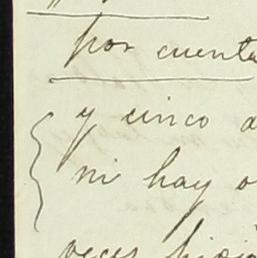 por cuenta
y cinco
ni hay
veces